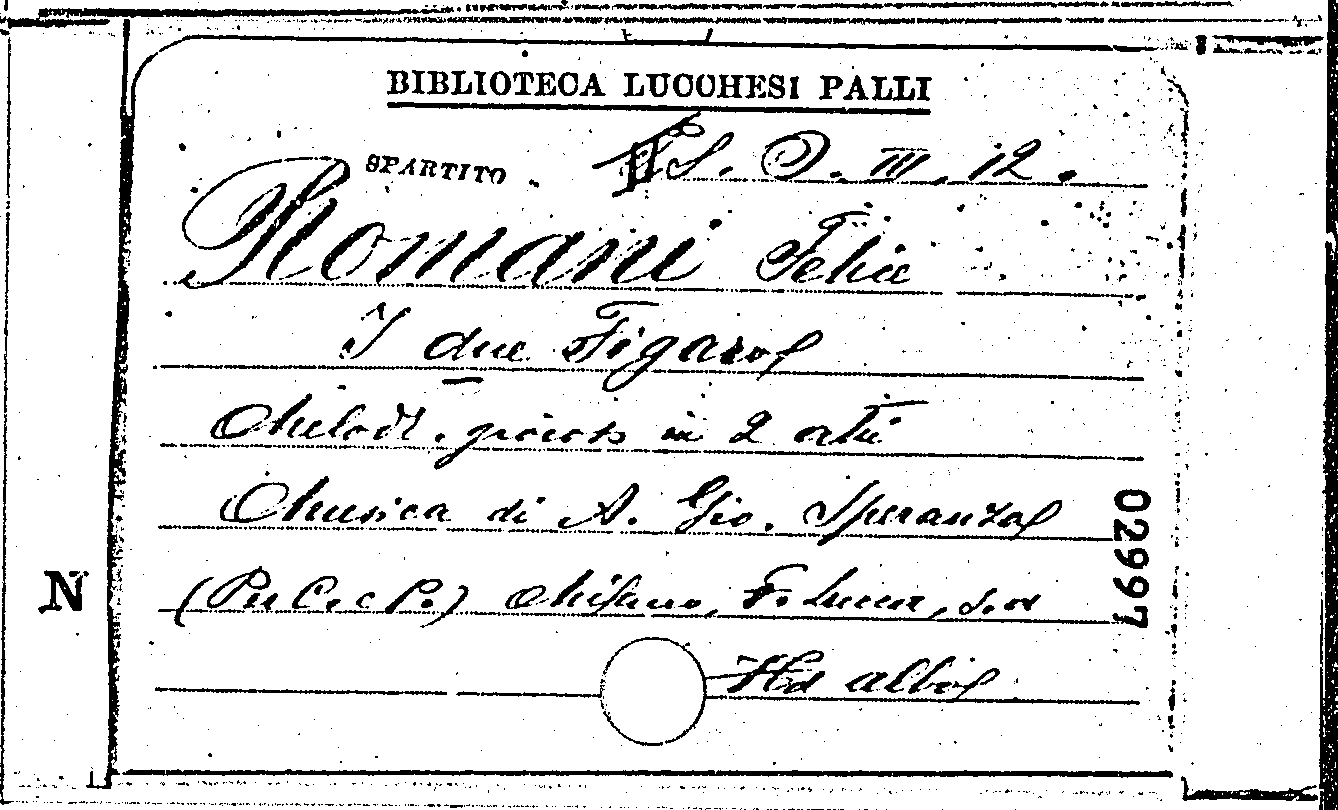 BIBLIOTECA LUCCHESI PALLI
SPARTITO. S. O. III. 12.
Romani Felice
I due Figaro
Melodr. giocoso in 2 atti
Musica di A. Gio. Speranza
(Per C. e P.) Milano, F. Lucca, s. a
in albo
02997
N